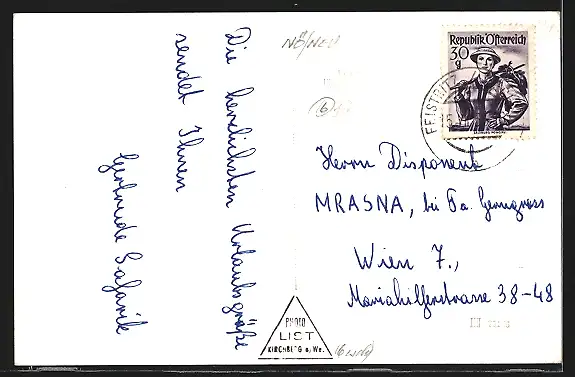 Die herzlichsten Urlaubsgrüße
sendet Ihnen
Gertrude Safarik
NÖ/NEU
REPUBLIK ÖSTERREICH
30
g
FEISTRITZ
Herrn Disponent
MRASNA, bei Fa. Gerngross
Wien 7.,
Mariahilferstrasse 38-48
PHOTO
LIST
KIRCHBERG a. We.